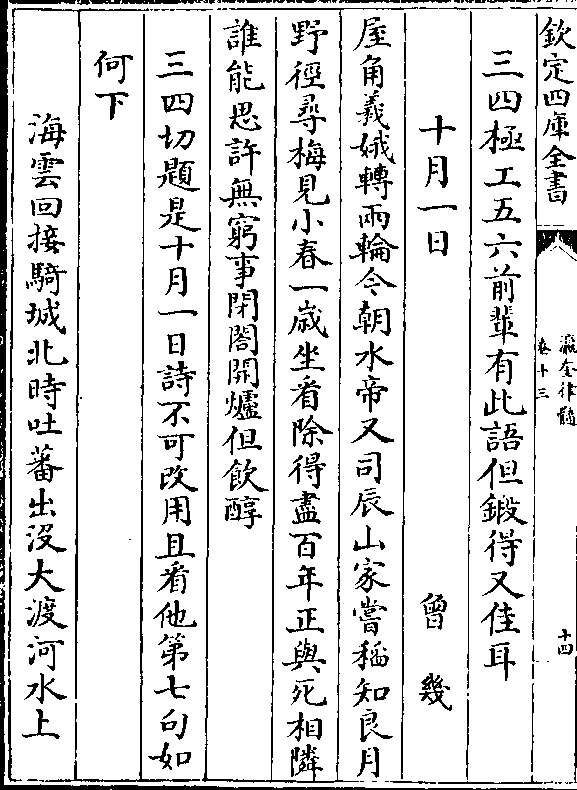 欽定四庫全書
瀛奎律髓
卷十三
十四
三四極工五六前輩有此語但鍛得又佳耳
十月一日 曾幾
屋角羲娥轉兩輪今朝水帝又司辰山家嘗稲知良月
野徑尋梅見小春一歳坐看除得盡百年正與死相隣
誰能思許無窮事閉閤開爐但飲醇
三四切題是十月一日詩不可改用且看他第七句如
何下
海雲回接騎城北時吐蕃出没大渡河水上